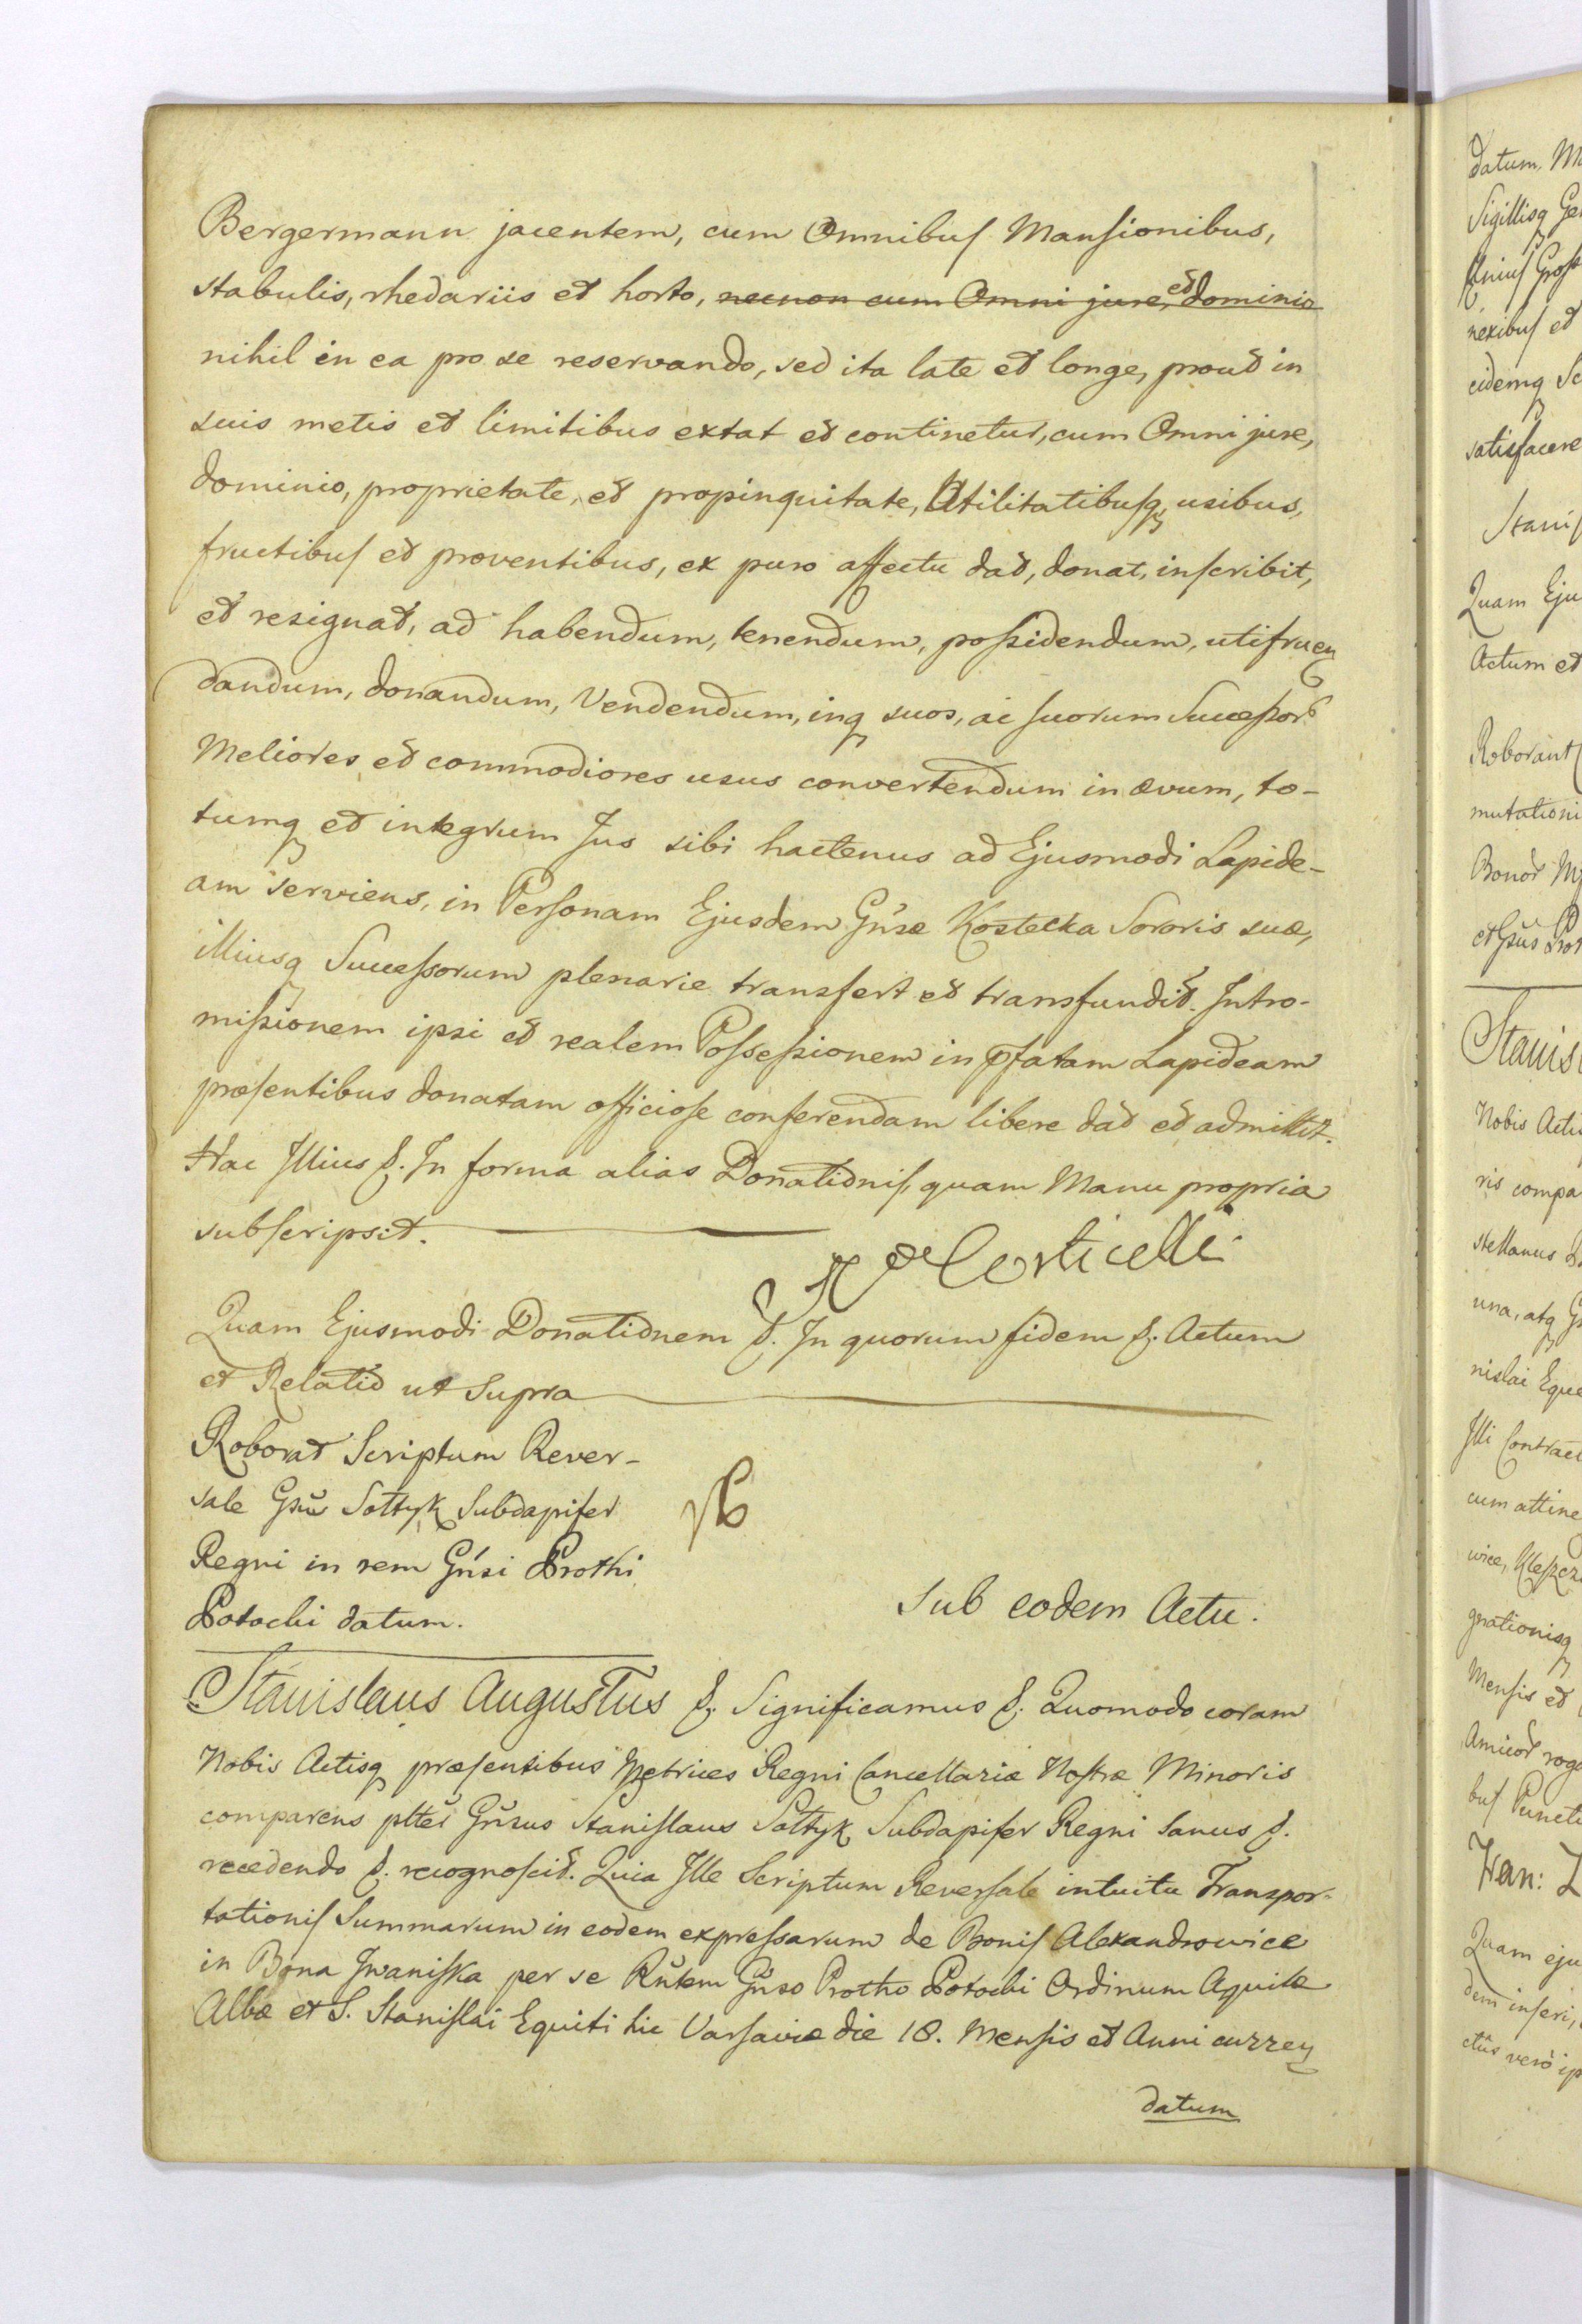 Bergermann jacentem, cum Omnibus Mansionibus,
stabulis, rhedariis et horto, necnon cum Omni jure, et dominio
nihil in ea pro se reservando, sed ita late et longe, prout in
suis metis et limitibus extat et continetur, cum Omni jure,
dominio, proprietate, et propinquitate, Utilitatibusq, usibus,
fructibus et proventibus, ex puro affectu dat, donat, inscribit,
et resignat, ad habendum, tenendum, possidendum, utifruen
dandum, donandum, Vendendum, inq suos, ac suorum Successor
Meliores et commodiores usus convertendum in ævum, to-
tumq et integrum Jus sibi hactenus ad Ejusmodi Lapide-
am serviens, in Personam Ejusdem Gńsæ Kostecka Sororis suæ,
illiusq Successorum plenarie transfert et transfundit. Intro-
missionem ipsi et realem Possessionem in pfatam Lapideam
præsentibus donatam officiose conferendam libere dat et admittit.
Hac Illius &. In forma alias Donationis, quam Manu propria
subscripsit.
Corticelli
Quam Ejusmodi Donationem &. In quorum fidem &. Actum
et Relatio ut Supra
Roborat Scriptum Rever-
sale Gsů Sołtyk Subdapifer
Regni in rem Gńsi Prothi
Potocki datum.
Sub eodem Actu.
Stanislaus Augustus &. Significamus &. Quomodo coram
Nobis Actisq præsentibus Metrices Regni Cancellariæ Nostræ Minoris
comparens pltĕr Gńsus Stanislaus Sołtyk Subdapifer Regni sanus &.
recedendo &. recognoscit. Quia Ille Scriptum Reversale intuitu Transpor-
tationis Summarum in eodem expressarum de Bonis Alexandrowice
in Bona Iwaniska per se Rńtem Gńso Protho Potocki Ordinum Aquilæ
Albæ et S. Stanislai Equiti hic Varsaviæ die 18. Mensis et Anni curren
datum